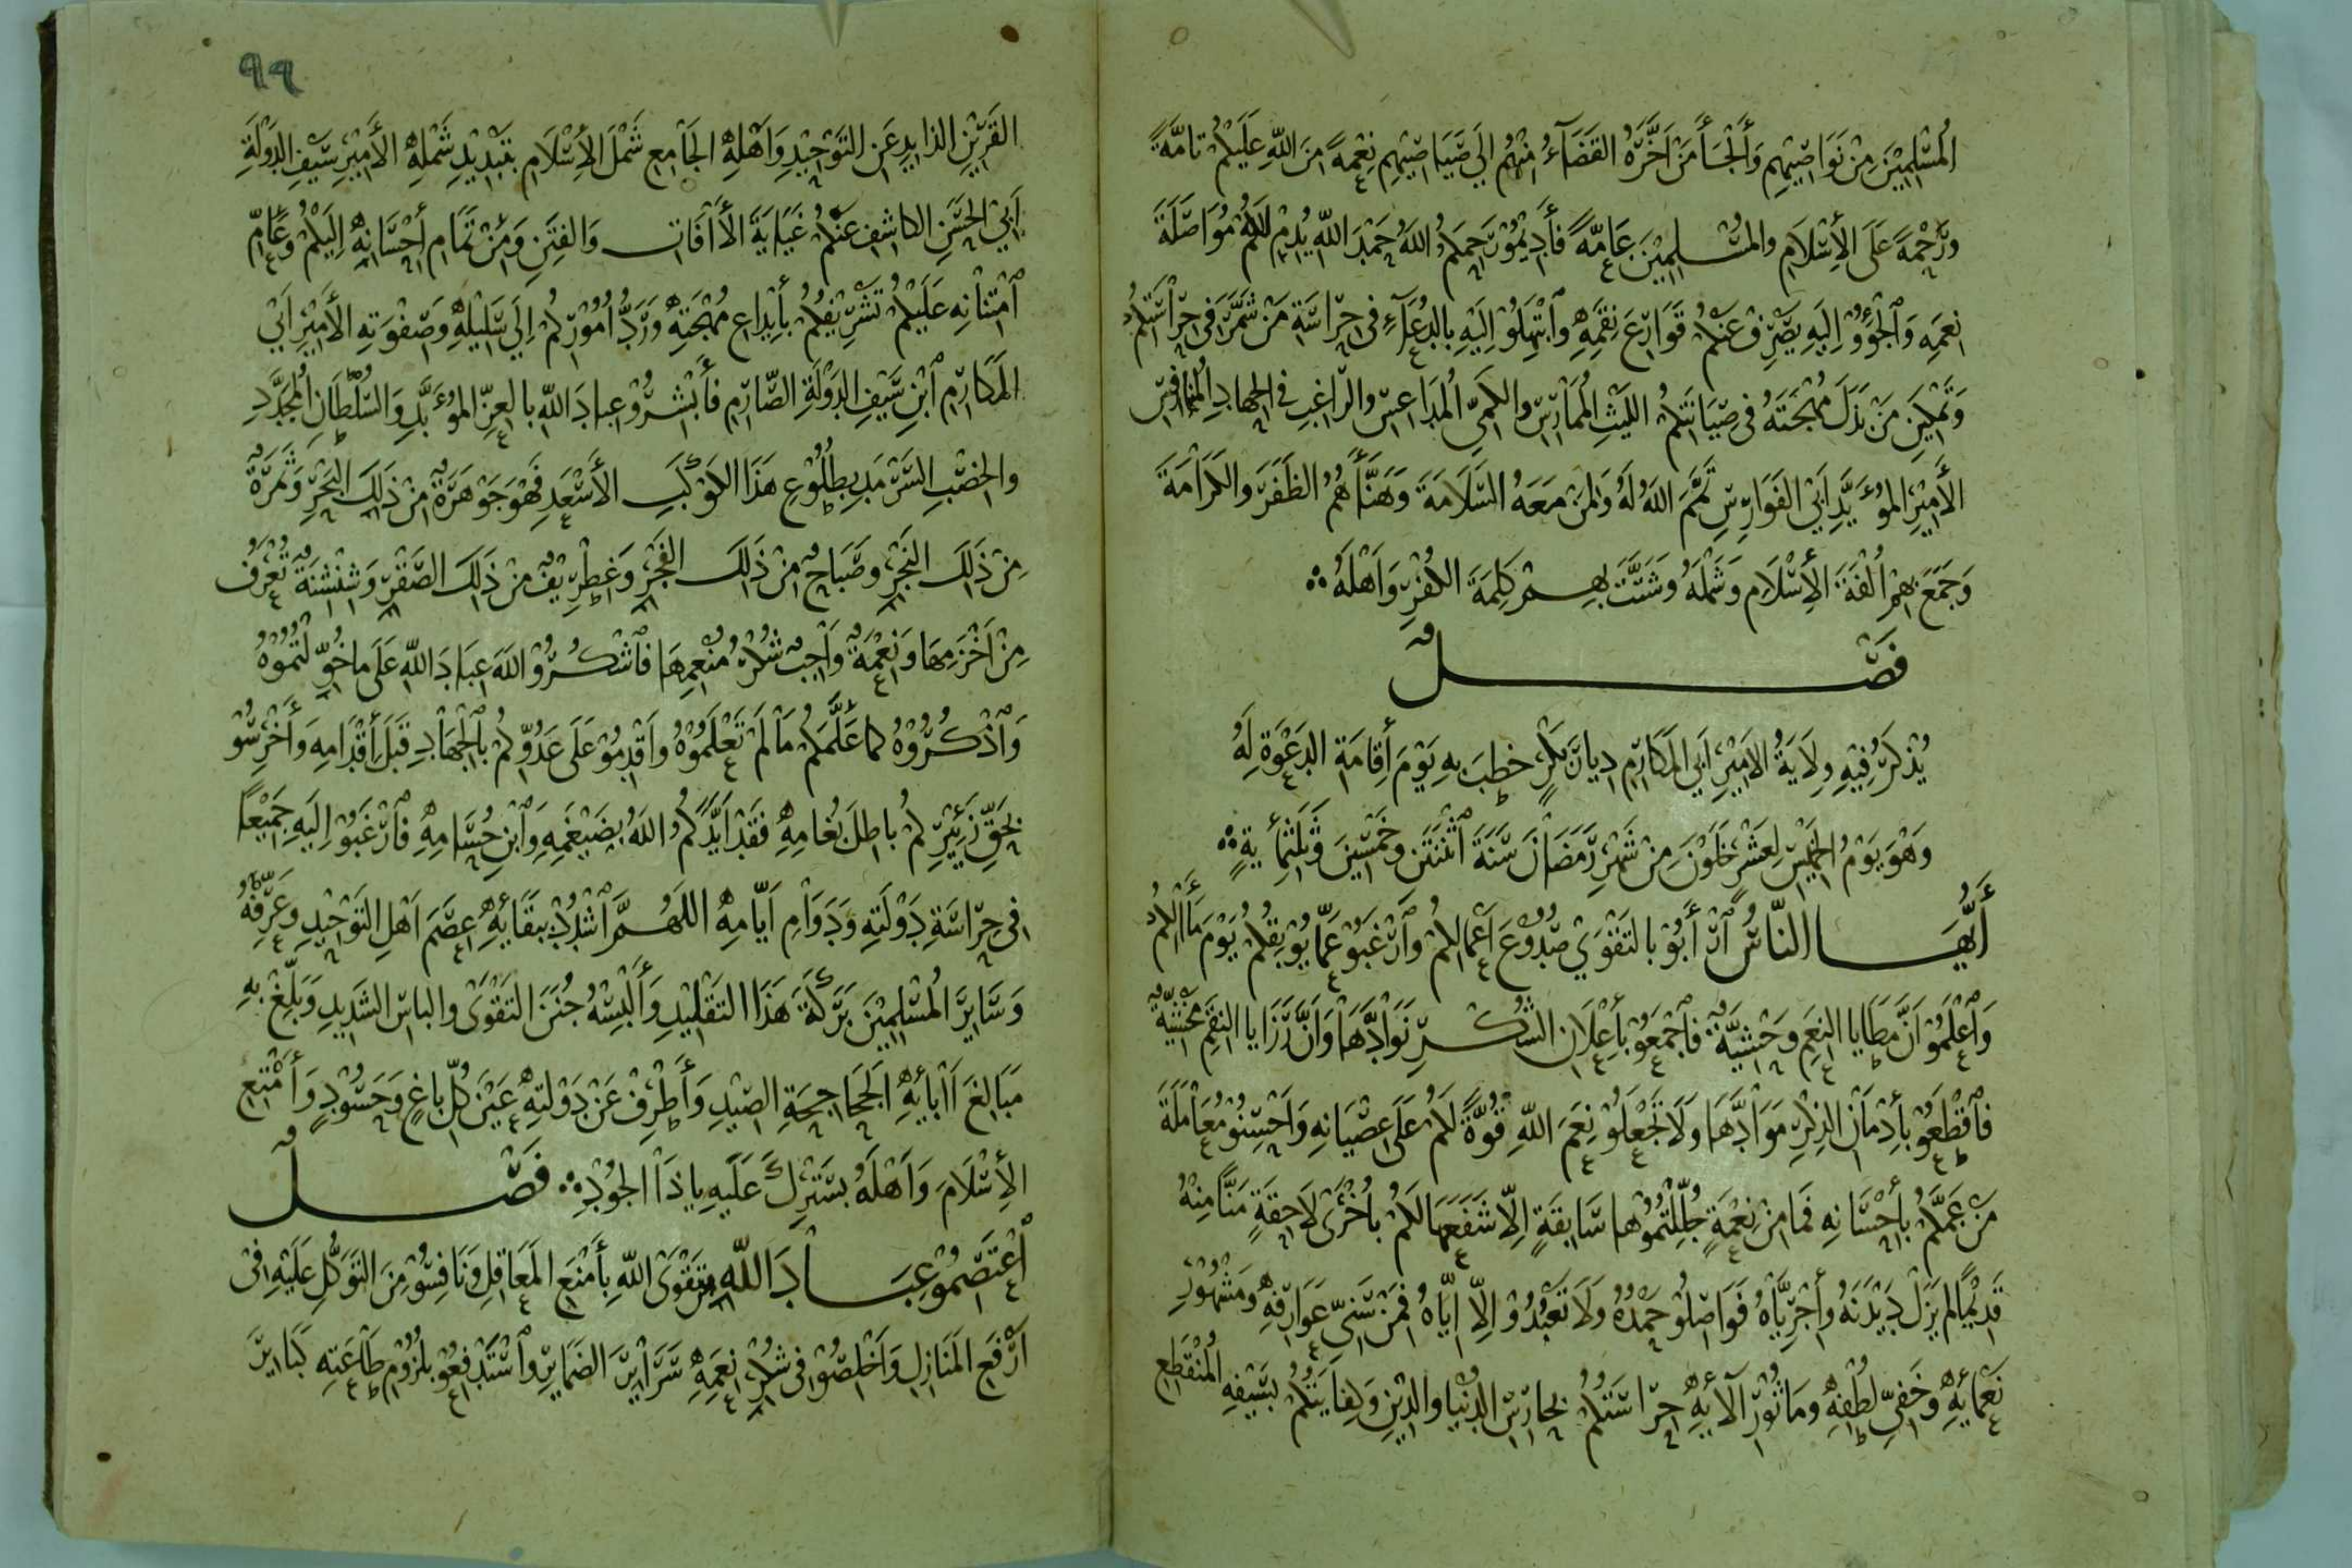 المُسْلِمِيْنَ مِنْ نَوَاصِيْهِمِ وَأَلْجَأَ مَنْ اَخَّرَهُ القَضَآءُ مِنْهُمْ إِلَي صَيَاصِيْهِم نِعْمَةً مِنَ اللّٰهِ عَلَيكُمْ تَامَّةً
وَرَحْمَةً عَلَى الإِسْلَامِ والمُسْلِمِيْنَ عَامَّةً فَأَدِيْمُوْ رَحِمَكُمُ اللّٰهُ حَمْدَ اللّٰهِ يُدِمْ لَكُمْ مُوَاصَلَةَ
نِعَمِهِ وَٱلْجَؤُوْ إِلَيهِ يَصْرِفْ عَنْكُمْ قَوَارِعَ نِقَمِهِ وَٱبْتَهِلُوْ إِلَيْهِ بِالدُعَآءِ فِى حِرَاسَةِ مَنْ شَمَّرَ فِى حِرْاسَتِكُمْ
وَتَمْكِيَنِ مَنْ بَذَلَ مُهْجَتَهُ فى صِيَانَتِكُمُ اللَيْثِ المُمَارِسِ والكَمِيِّ المُدَاعِسِ والرَّاغِبِ فِى الجِهَادِ المُنَافِسِ
الأَمِيْرِ المُؤَيَّدِ اَبِيْ الفَوَارِسِ تَمَّمَ اللّٰهُ لَهُ وَلِمَنْ مَعَهُ السَّلَامَةَ وَهَنَّأَهُمُ الظَفَرَ والكَرَامَةَ
وَجَمَعَ بِهِمْ اُلْفَةَ الأِسْلَامِ وَشَمْلَهُ وشَتَّتَ بِهِمْ كَلِمَةَ الكُفْرِ وَاَهْلَهُ
فَصْلٌ
يُذْكَرُ فِيْهِ وِلَايَةُ الاَمِيْرِ اَبِي المَكَارِمِ دِيَارَ بَكْرٍ خطِبَ بِهِ يَوْمَ أِقَامَةِ الدَعْوَةِ لَهُ
وَهْوَ يَوْمُ الخَمِيْسِ لِعَشْرٍ خَلَوْنَ مِنْ شَهْرِ رَمَضَانَ سَنَةَ ٱثْنَتَيْن وَخَمْسِينَ وَثَلَثِمأيةٍ
أَيُّهَا النَّاسُ ٱرْأَبُوْ بِالتَقْوَي صُدُوْعَ اَعْمَالِكُمْ وَٱرْغَبُوْ عَمَّا يُوْبِقُكُمْ يَوْمَ مَأَالِكُمْ
وَٱعْلَمُوْ اَنَّ مَطَايا النِعَمِ وَحْشِيَّةٌ فَٱجْمَعُوْ بِأِعْلَانِ الشُّكْرِ نَوَادَّهَا وَاَنَّ رَزَايا النِقَمِ مَخْشِيَّةٌ
فَٱقْطَعُوْ بِأِدْمَانِ الذِكْرِ مَوَادَّهَا وَلَا تَجْعَلُوْ نِعَمَ اللّٰهِ قُوَّةً لَكُمْ عَلَى عِصْيَانِهِ وَاَحْسِنُوْ مُعَامَلَةَ
مَنْ عَمَّكُمْ بِأِحْسَانِهِ فَمَا مِنْ نِعْمَةٍ جُلِّلْتُمُوْهَا سَابِقَةٍ إِلّا شَفَعَهَا لَكُمْ بِاُخْرَى لَاحِقَةٍ مَنًّا مِنْهُ
قَدِيْمًا لَم يَزَلْ دَيْدَنَهُ وَأِجْرِيَّاهُ فَوَاصِلُوْ حَمْدَهُ وَلَا تَعْبُدُوْ إِلّا اِيَّاهُ فَمِنْ سَنِيِّ عَوَارِفِهِ وَمَشْهُوْرِ
نَعْمَايِهِ وَخَفِيِّ لُطْفِهِ وَمَاثُوْرِ آلَآيِهِ حِرَاسَتُكُمْ بِحَارِسِ الدُنْيا والدِيْنِ وَكِفَايَتُكُمْ بِسَيْفِهِ المُنْقَطِعِ
٩٩
القَرِيْنِ الذَايِدِ عَنِ التَوْحِيْدِ وَاَهْلِهِ الجَامِعِ شَمْلَ الأِسْلَامِ بِتَبْدِيْدِ شَمْلِهِ الأَمِيْرِ سَيْفِ الدَوْلَةِ
اَبِيْ الحَسَنِ الكَاشِفِ عَنْكُمْ غَيَايَةَ الأَافَاتِ وَالفِتَنِ وَمِنْ تَمَامِ أِحْسَانِهِ إِلَيْكُمْ وَعَامِّ
ٱمْتِنَانِهِ عَلَيْكُمْ تَشْرِيْفُكُمْ بِأِيْدَاعِ مُهْجَتِهِ وَرَدُّ اُمُوْرِكُمْ إِلَى سَلِيْلِهِ وَصَفْوَتِهِ الأَمِيْرِ اَبِي
المَكَارِمِ ٱبْنِ سَيْفِ الدَوْلَةِ الصَّارِمِ فَأَبْشِرُوْ عِبَادَ اللّٰهِ بِالعِزِّ المُؤَبَّدِ وَالسُلْطَانِ المُجَدَّدِ
والخِصْبِ السَرْمَدِ بِطُلُوْعِ هَذَا الكَوْكَبِ الأَسْعَدِ فَهْوَ جَوْهَرَةٌ مِنْ ذَلِكَ البَحْرِ وَثَمَرَةٌ
مِنْ ذَلِكَ النَجْرِ وَصَبَاحٌ مِنْ ذَلِكَ الفَجْرِ وَغِطْرِيْفٌ مِنْ ذَلِكَ الصَقْرِ وَشِنْشِنَةٌ تُعْرَفُ
مِنْ اَخْزَمِهَا وَنِعْمَةٌ وَاجِبٌ شُكْرُ مُنْعِمِهَا فَٱشْكُرُوْ اللّٰهَ عِبَادَ اللّٰهِ عَلَى مَا خُوِّلْتُمُوْهُ
وَٱذْكُرُوْهُ كَمَا عَلَّمَكُمْ مَا لَمْ تَعْلَمُوْهُ وَاَقْدِمُوْ عَلَى عَدُوِّكُمْ بِٱلْجِهَادِ قَبْلَ أِقْدَامِهِ وَأَخْرِسُوْ
بِحَقِّ زَئِيْرِكُمْ بَاطِلَ بُغَامِهِ فَقَدْ اَيَّدَكُمُ اللّٰهُ بِضَيْغَمِهِ وَٱبْنِ حُسَامِهِ فَٱرْغَبُوْ إِلَيهِ جَمِيْعًا
فِى حِرَاسَةِ دَوْلَتِهِ وَدَوَامِ اَيَّامِهِ اللَهُمَّ ٱشْدُدْ بِبَقَائِهِ عِصَمَ اَهْلِ التَوْحِيْدِ وَعَرِّفْهُ
وَسَايِرَ المُسْلِمِيْنَ بَرَكَةَ هَذَا التَقْلِيْدِ وَأَلْبِسْهُ جُنَنَ التَقْوَى والبَاسِ الشَدِيدِ وَبَلِّغْ بِهِ
مَبَالِغَ اَابَائِهِ الجَحَاجِحَةِ الصِيْدِ وَأَطْرِفْ عَنْ دَوْلَتِهِ عَيْنَ كُلِّ بَاغٍ وَحَسُوْدٍ وَأَمْتِعِ
الأِسْلَامَ وَاَهْلَهُ بِسَتْرِكَ عَلَيهِ يَا ذَا الجُوْدِ فَصْلٌ
ٱعْتَصِمُوْ عِبَادَ اللّٰهِ مِنْ تَقْوَى اللّٰهِ بِأَمْنَعِ المَعَاقِلِ وَنَافِسُوْ مِنَ التَوَكُّلِ عَلَيْهِ فِى
اَرْفَعِ المَنَازِلِ وَاَخْلِصُوْا فِى شُكْرِ نِعَمِهِ سَرَايِرَ الضَمَايِرِ وَٱسْتَدْفِعُوْ بِلُزُوْمِ طَاعَتِهِ كَبَايِرَ